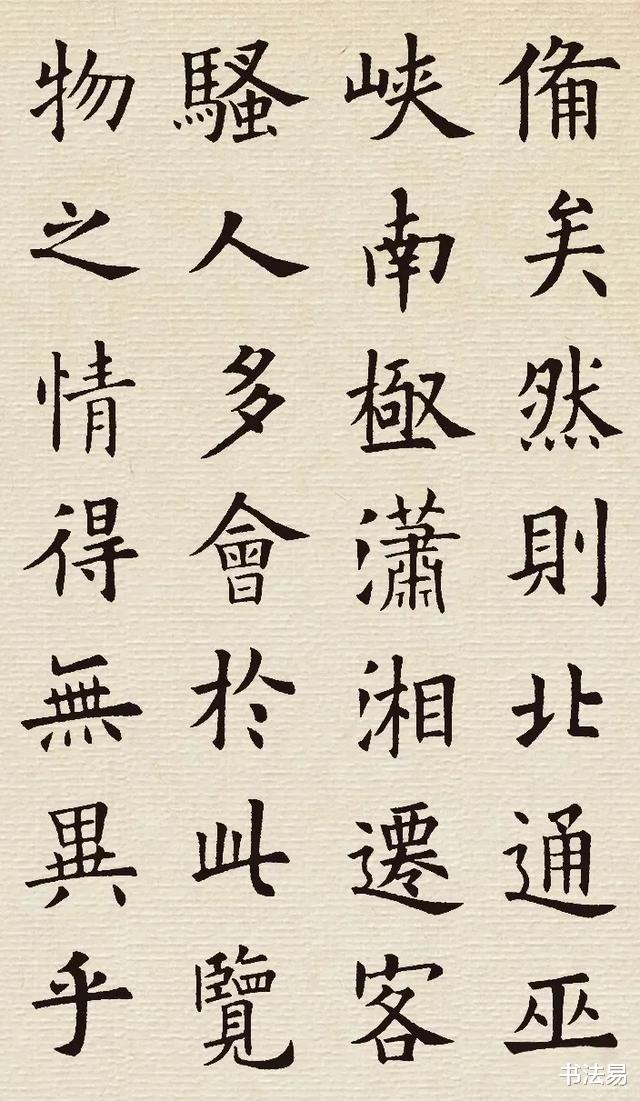 備矣然則北通巫
峽南極瀟湘遷客
騷人多會於此覽
物之情得無異乎
书法易